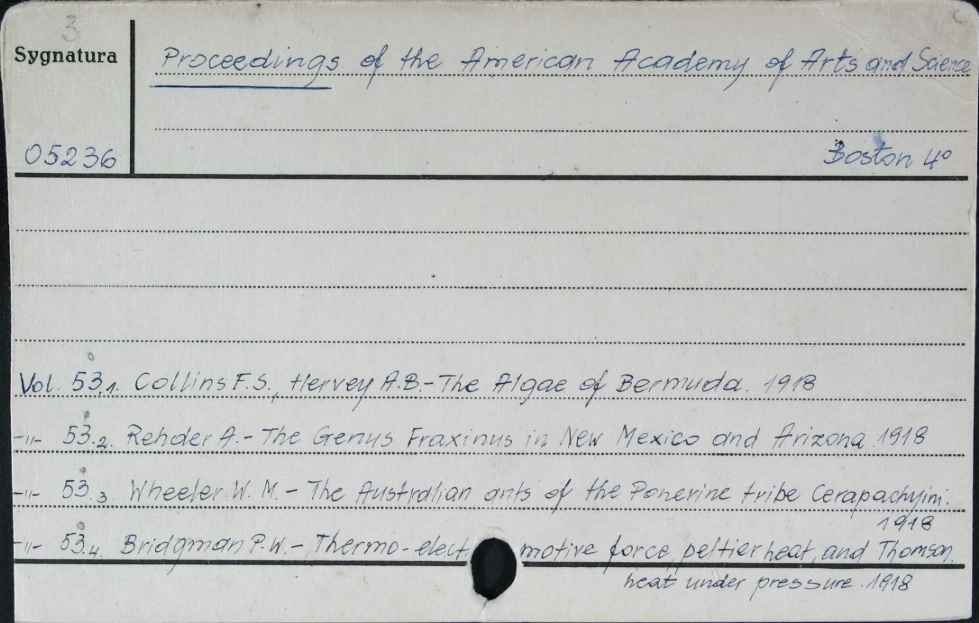 3
Sygnatura
Proceedings of the American Academy of Arts and Science
05236
Boston 4°
Vol. 53.1. Collins F.S., Hervey A.B. - The Algae of Bermuda. 1918
-"- 53.2. Rehder A. - The Genus Fraxinus in New Mexico and Arizona 1918
-"- 53.3. Wheeler W. M. - The Australian ants of the Ponerine tribe Cerapachyini.
1918
-"- 53.4. Bridgman P.W. - Thermo-elect motive force, peltier heat, and Thomson
heat under pressure. 1918